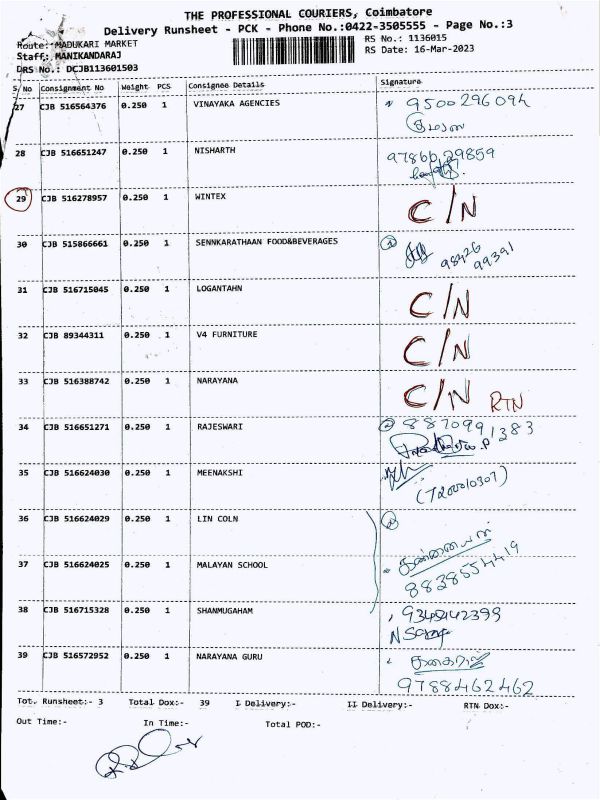 THE PROFESSIONAL COURIERS, Coimbatore
Delivery Runsheet - PCK - Phone No.:0422-3505555 - Page No.:3
Route: MADUKARI MARKET RS No.: 1136015
Staff: MANIKANDARAJ RS Date: 16-Mar-2023
DRS No.: DCJB113601503
S No Consignment No Weight PCS Consignee Details Signature
27 CJB 516564376 0.250 1 VINAYAKA AGENCIES 9500296094
28 CJB 516651247 0.250 1 NISHARTH 9786629859
29 CJB 516278957 0.250 1 WINTEX C/N
30 CJB 515866661 0.250 1 SENNKARATHAAN FOOD&BEVERAGES
98426
99391
31 CJB 516715045 0.250 1 LOGANTAHN C/N
32 CJB 89344311 0.250 1 V4 FURNITURE C/N
33 CJB 516388742 0.250 1 NARAYANA C/N RTN
34 CJB 516651271 0.250 1 RAJESWARI 8870991383
35 CJB 516624030 0.250 1 MEENAKSHI
(7200010307)
36 CJB 516624029 0.250 1 LIN COLN
37 CJB 516624025 0.250 1 MALAYAN SCHOOL
8838554419
38 CJB 516715328 0.250 1 SHANMUGAHAM 9345142399
39 CJB 516572952 0.250 1 NARAYANA GURU
9788462462
Tot. Runsheet:- 3 Total Dox:- 39 I Delivery:- II Delivery:- RTN Dox:-
Out Time:- In Time:- Total POD:-